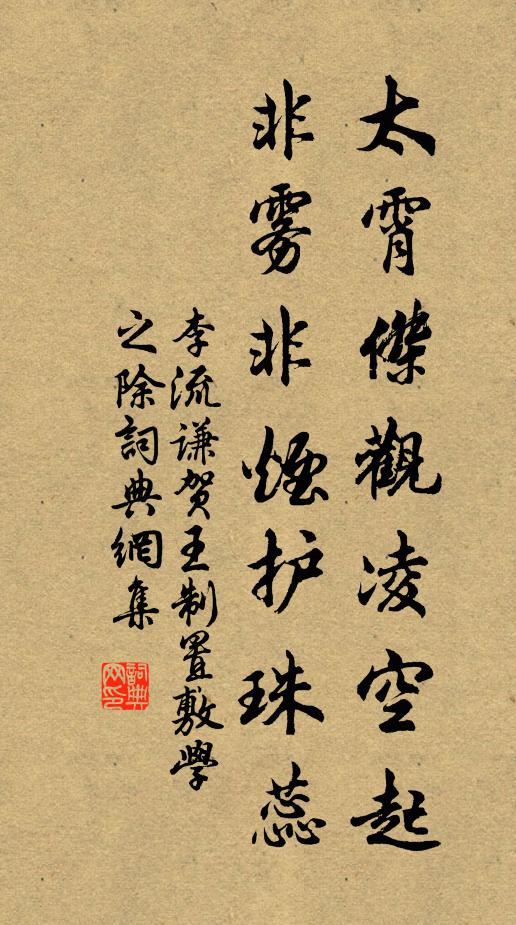 太霄傑觀凌空起
非雾非煙护珠蕊
李流谦贺王制置敷學
之除詞典網集
詞典网印